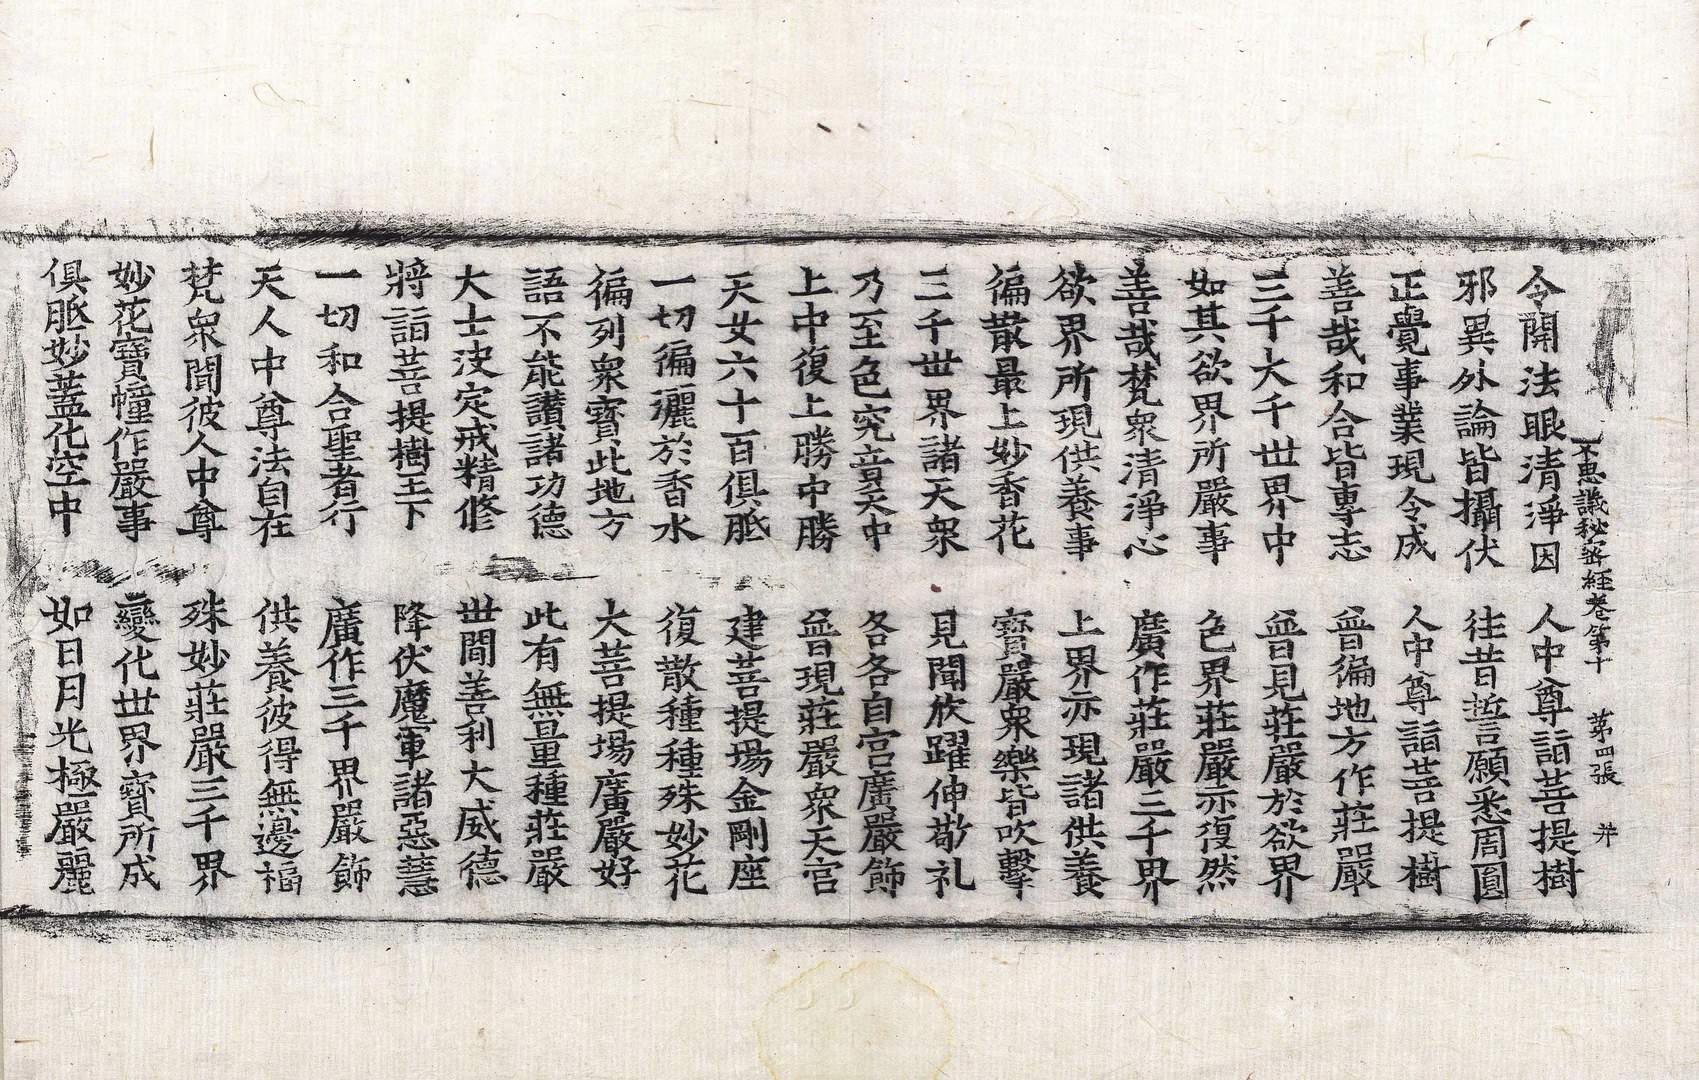 不思議秘密經卷第十　第四張　并
令開法眼清淨因　人中尊詣菩提樹
邪異外論皆攝伏　往昔誓願悉周圓
正覺事業現令成　人中尊詣菩提樹
善哉和合皆專志　普徧地方作莊嚴
三千大千世界中　普見莊嚴於欲界
如其欲界所嚴事　色界莊嚴亦復然
善哉梵衆清淨心　廣作莊嚴三千界
欲界所現供養事　上界亦現諸供養
徧散最上妙香花　寶嚴衆樂皆吹擊
三千世界諸天衆　見聞欣躍伸敬礼
乃至色究竟天中　各各自宮廣嚴飾
上中復上勝中勝　普現莊嚴衆天宮
天女六十百俱胝　建菩提場金剛座
一切徧灑於香水　復散種種殊妙花
徧列衆寶此地方　大菩提場廣嚴好
語不能讃諸功德　此有無量種莊嚴
大士决定戒精修　世間善利大威德
將詣菩提樹王下　降伏魔軍諸惡慧
一切和合聖者行　廣作三千界嚴飾
天人中尊法自在　供養彼得無邊福
梵衆聞彼人中尊　殊妙莊嚴三千界
妙花寶幢作嚴事　變化世界寶所成
俱胝妙蓋化空中　如日月光極嚴麗